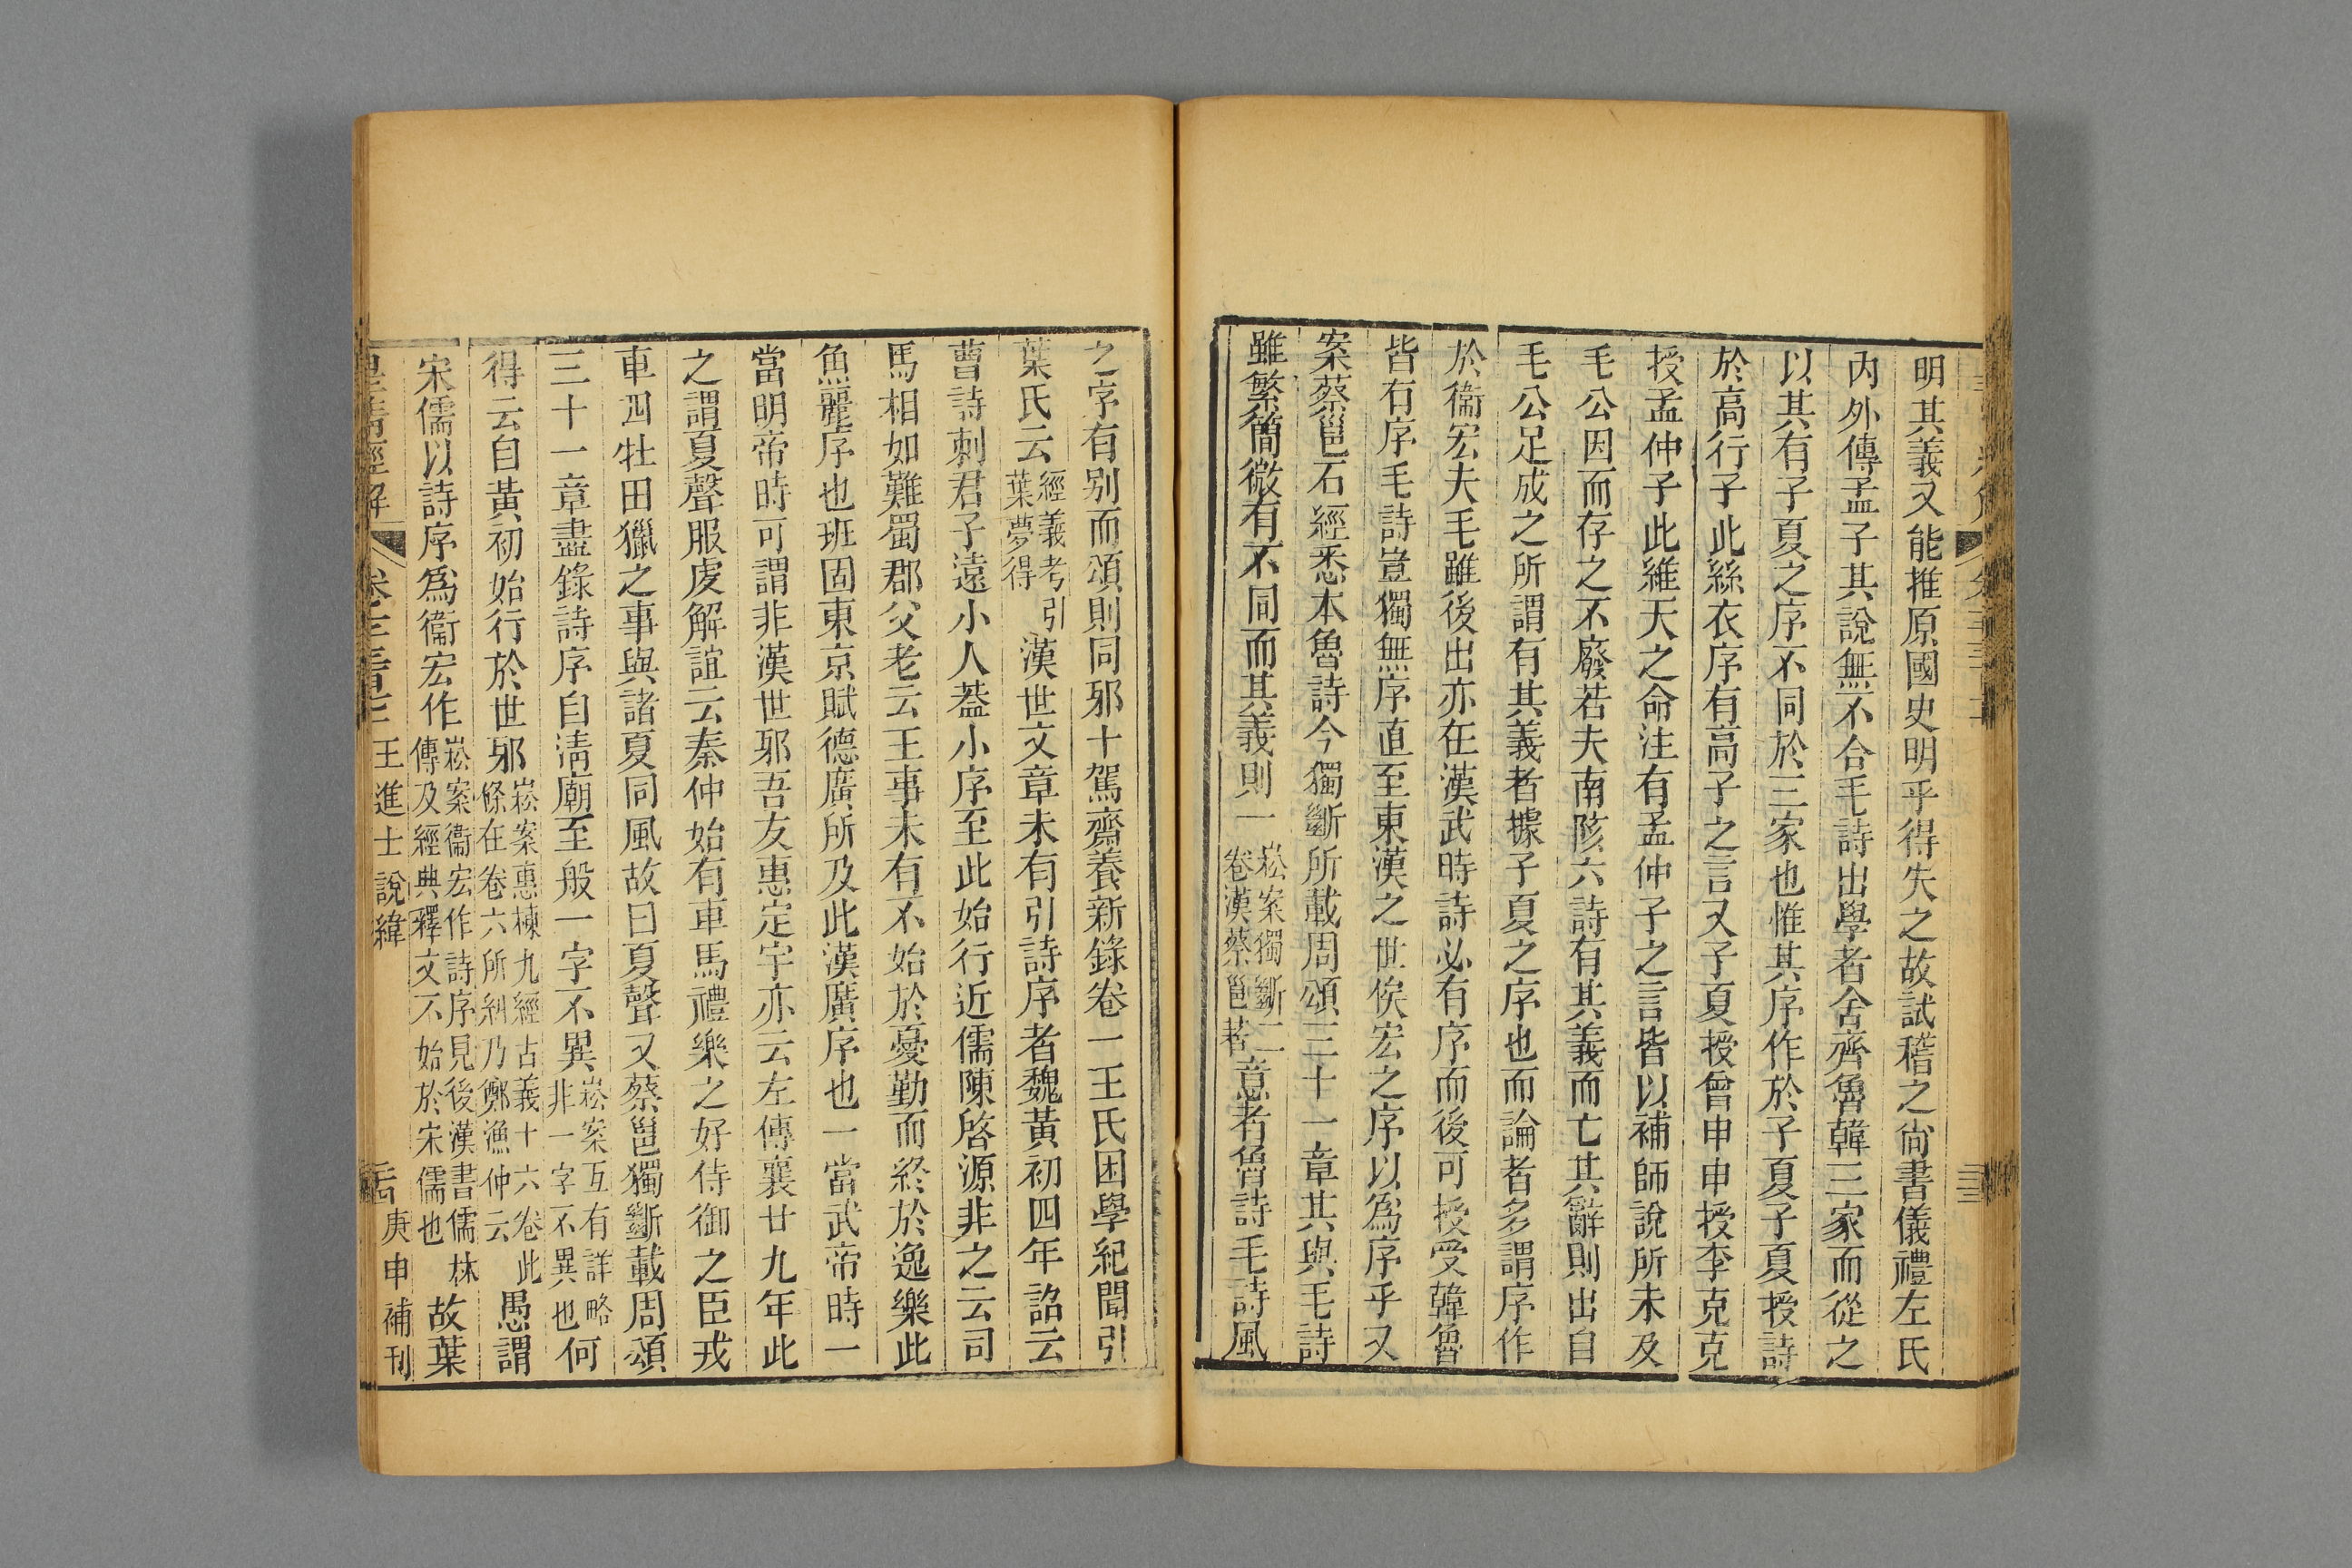 明其義又能推原國史明乎得失之故試稽之尙書儀禮左氏
內外傳孟子其說無不合毛詩出學者舍齊魯韓三家而從之
以其有子夏之序不同於三家也惟其序作於子夏子夏授詩
於高行子此絲衣序有高子之言又子夏授曾申申授李克克
授孟仲子此維天之命注有孟仲子之言皆以補師說所未及
毛公因而存之不廢若夫南陔六詩有其義而亡其辭則出自
毛公足成之所謂有其義者據子夏之序也而論者多謂序作
於衞宏夫毛雖後出亦在漢武時詩必有序而後可授受韓魯
皆有序毛詩豈獨無序直至東漢之世俟宏之序以爲序乎又
案蔡邕石經悉本魯詩今獨斷所載周頌三十一章其與毛詩
雖繁簡微有不同而其義則一崧案獨斷二卷漢蔡邕著意者魯詩毛詩風
之序有別而頌則同邪十駕齋養新錄卷一王氏困學紀聞引
葉氏云經義考引葉夢得漢世文章未有引詩序者魏黃初四年詔云
曹詩刺君子遠小人葢小序至此始行近儒陳啓源非之云司
馬相如難蜀郡父老云王事未有不始於憂勤而終於逸樂此
魚麗序也班固東京賦德廣所及此漢廣序也一當武帝時一
當明帝時可謂非漢世邪吾友惠定宇亦云左傳襄廿九年此
之謂夏聲服虔解誼云秦仲始有車馬禮樂之好侍御之臣戎
車四牡田獵之事與諸夏同風故曰夏聲又蔡邕獨斷載周頌
三十一章盡錄詩序自淸廟至般一字不異崧案互有詳略非一字不異也何
得云自黃初始行於世邪崧案惠棟九經古義十六卷此條在卷六所糾乃鄭漁仲云愚謂
宋儒以詩序爲衞宏作崧案衞宏作詩序見後漢書儒林傳及經典釋文不始於宋儒也故葉
皇淸經解 王進士說緯 庚申補刊